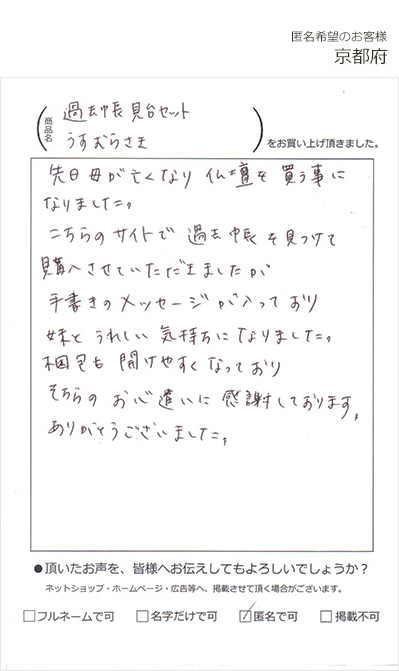 匿名希望のお客様
京都府
商品名
過去帳見台セット
うすむらさき
をお買い上げ頂きました。
先日母が亡くなり仏壇を買う事に
なりました。
こちらのサイトで過去帳を見つけて
購入させていただきましたが
手書きのメッセージが入っており
妹とうれしい気持ちになりました。
梱包も開けやすくなっており
そちらのお心遣いに感謝しております。
ありがとうございました。
●頂いたお声を、皆様へお伝えしてもよろしいでしょうか?
ネットショップ・ホームページ・広告等へ、掲載させて頂く場合がございます。
□フルネームで可 □名字だけで可 ☑匿名で可 □掲載不可